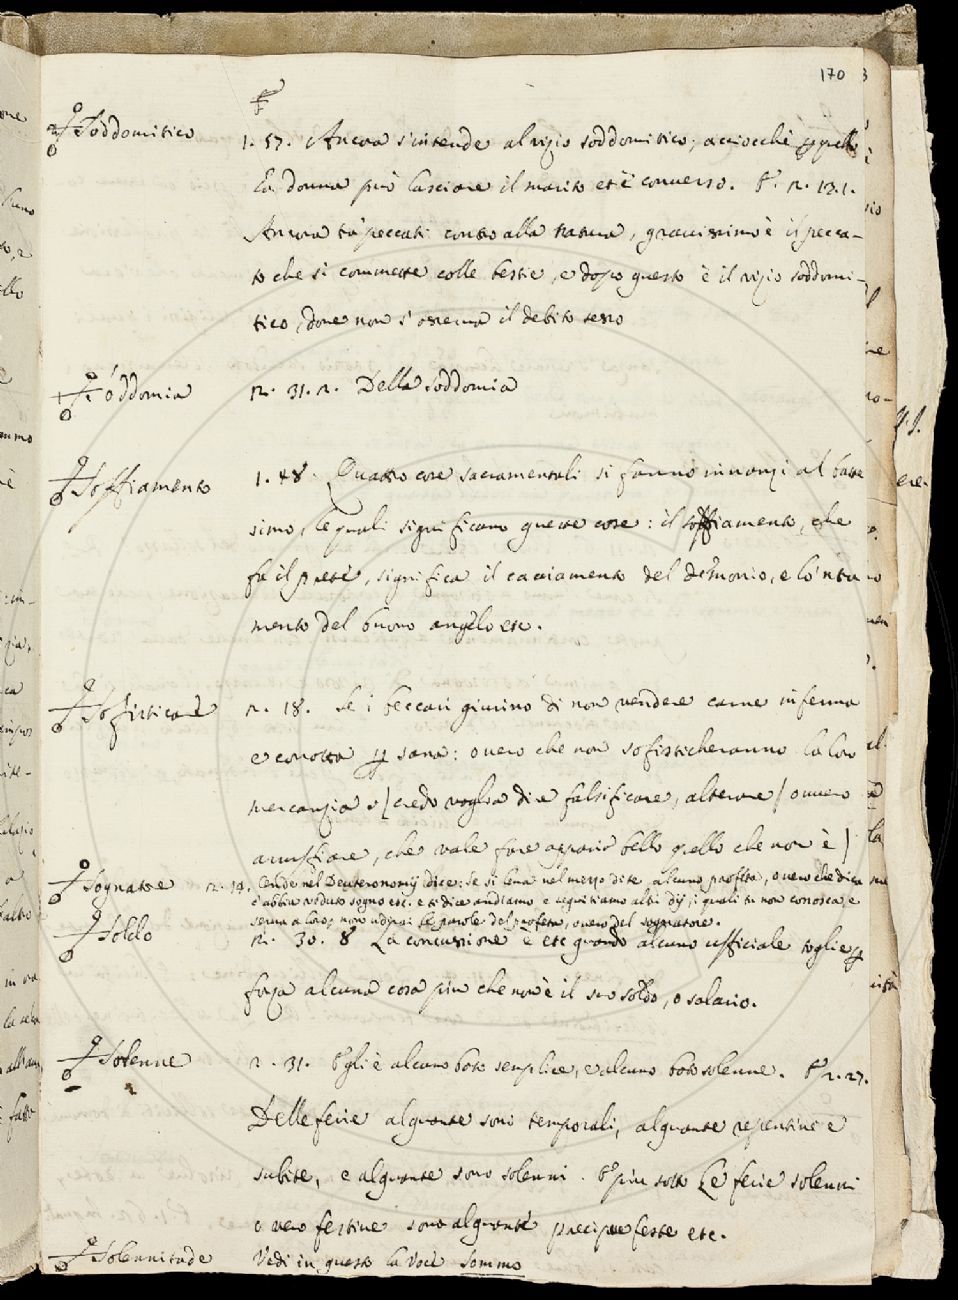 170
Soddomitico
1. 57. Ancora s'intende al vizio soddomitico; acciocchè
La donna può lasciare il marito et è converso. E. 2. 13.1.
Ancora tra peccati contro alla natura, gravissimo è il pecca-
to che si commette colle bestie, e dopo questo è il vizio soddomi-
tico, dove non s'osserva il debito sesso
Soddomia
2. 31. 2. Della Soddomia
Soffiamento
1. 48. Quattro cose sacramentali si fanno innanzi al batte
simo, le quali significano queste cose: il soffiamento, che
fa il prete, significa il cacciamento del demonio, e lo'ntra
mento del buono angelo etc.
Sofisticare
2. 18. Se i beccari giurino di non vendere carne inferma
e corrotta per sana: overo che non sofisticheranno la loro
mercanzia (credo voglia dire falsificare, alterare) ovvero
, che vale fare apparir bello quello che non è)
Sognatore
2. 14. Onde nel Deuteronomij dice: Se si leva nel mezzo di te alcuno profeta, o vero che dica
ch'abbia veduto sogno etc. e ti dice andiamo e seguitiamo altri dij, i quali tu non conosca, e
serva a loro; non udirai le parole del profeta, overo del sognatore.
Soldo
2. 30. 8. La concussione è etc quando alcuno ufficiale toglie per
forza alcuna cosa più che non è il suo soldo, o salario.
Solenne
2. 31. Egli è alcuno boto semplice, e alcuno boto solenne. E 2. 27.
Delle ferie alquante sono temporali, alquante repentine e
subite, e alquante sono solenni. E più sotto Le ferie solenni
o vero festive sono alquante precipue feste etc.
Solennitade
Vedi in questo la voce Sommo